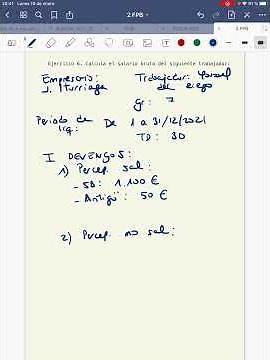 20:41 Lunes 10 de enero
2 FPB
Ejercicio 6. Calcula el salario bruto del siguiente trabajador:
Empresario: Trabajador:
J. Iturriaga
gr: 7
Periodo de De 1 a 31/12/2021
liq:
TD: 30
I DEVENGOS:
1) Percep. sal:
- SB: 1.100 €
- Antigü: 50 €
2) Percep. no sal: